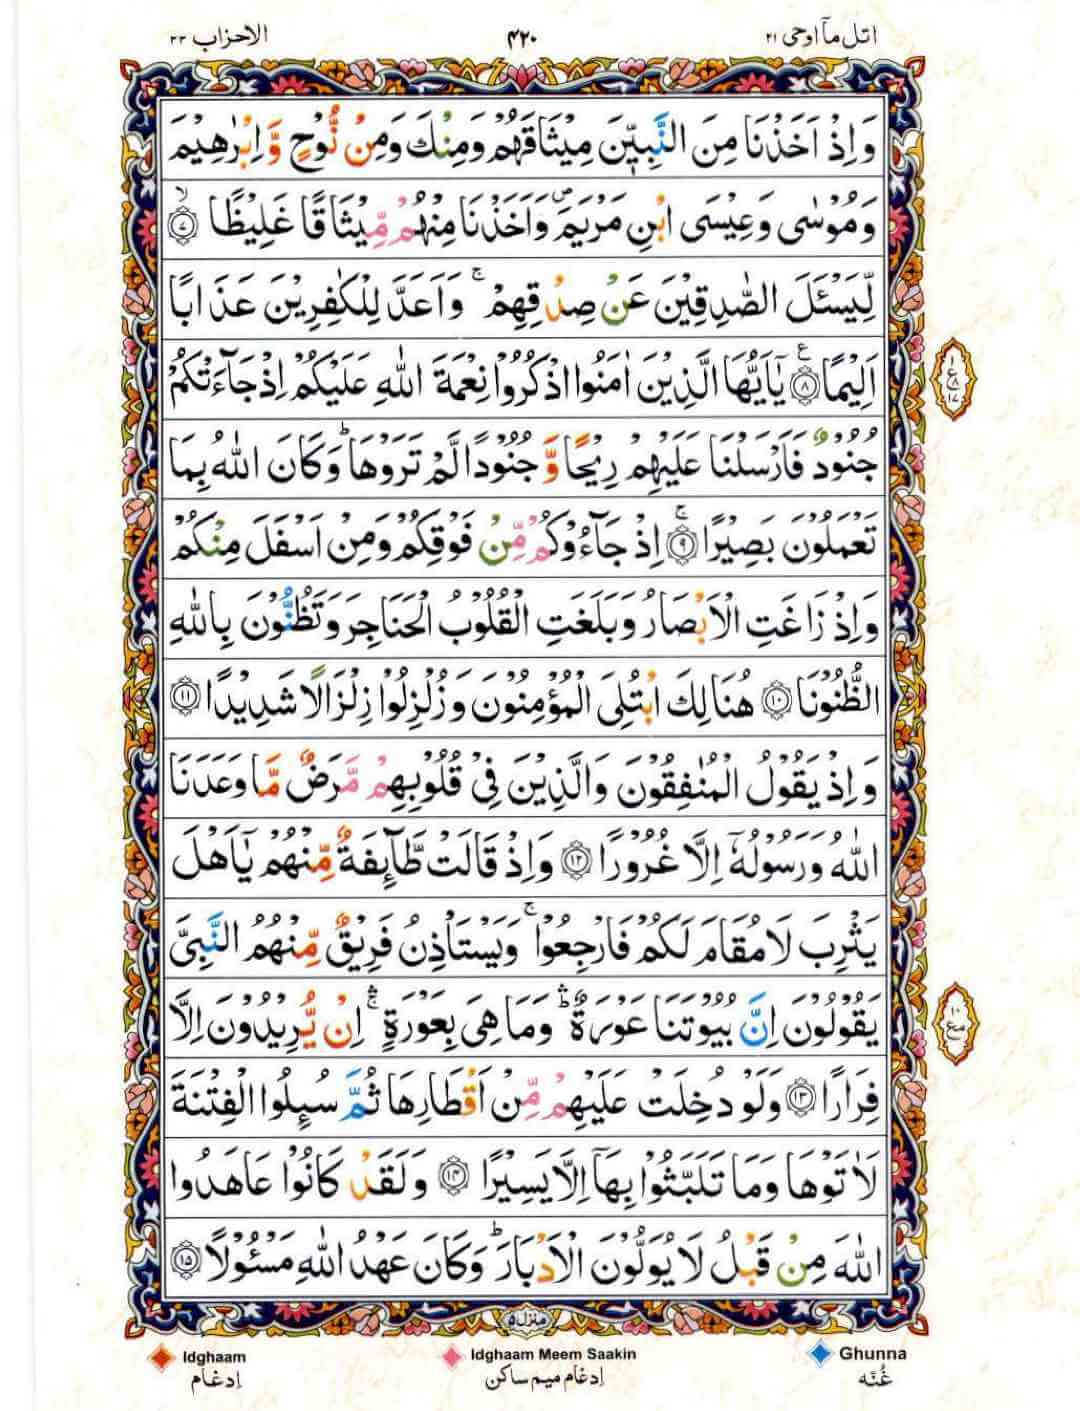 اتل مآ اوحی ۲۱
۴۲۰
الاحزاب ۳۳
وَاِذْ اَخَذْنَا مِنَ النَّبِيّٖنَ مِيْثَاقَهُمْ وَمِنْكَ وَمِنْ نُّوْحٍ وَّ اِبْرٰهِيْمَ
وَمُوْسٰى وَعِيْسَى ابْنِ مَرْيَمَ ۪ وَاَخَذْنَا مِنْهُمْ مِّيْثَاقًا غَلِيْظًا ۙ‏﴿۷﴾
لِّيَسْـَٔلَ الصّٰدِقِيْنَ عَنْ صِدْقِهِمْ ۚ وَاَعَدَّ لِلْكٰفِرِيْنَ عَذَابًا
اَلِيْمًا ﴿۸﴾ يٰۤاَيُّهَا الَّذِيْنَ اٰمَنُوا اذْكُرُوْا نِعْمَةَ اللّٰهِ عَلَيْكُمْ اِذْ جَآءَتْكُمْ
جُنُوْدٌ فَاَرْسَلْنَا عَلَيْهِمْ رِيْحًا وَّ جُنُوْدًا لَّمْ تَرَوْهَا ؕ وَكَانَ اللّٰهُ بِمَا
تَعْمَلُوْنَ بَصِيْرًا ۚ﴿۹﴾ اِذْ جَآءُوْكُمْ مِّنْ فَوْقِكُمْ وَمِنْ اَسْفَلَ مِنْكُمْ
وَاِذْ زَاغَتِ الْاَبْصَارُ وَبَلَغَتِ الْقُلُوْبُ الْحَنَاجِرَ وَتَظُنُّوْنَ بِاللّٰهِ
الظُّنُوْنَا ﴿۱۰﴾ هُنَالِكَ ابْتُلِىَ الْمُؤْمِنُوْنَ وَزُلْزِلُوْا زِلْزَالًا شَدِيْدًا ﴿۱۱﴾
وَاِذْ يَقُوْلُ الْمُنٰفِقُوْنَ وَالَّذِيْنَ فِىْ قُلُوْبِهِمْ مَّرَضٌ مَّا وَعَدَنَا
اللّٰهُ وَرَسُوْلُهٗۤ اِلَّا غُرُوْرًا ﴿۱۲﴾ وَاِذْ قَالَتْ طَّآئِفَةٌ مِّنْهُمْ يٰۤاَهْلَ
يَثْرِبَ لَا مُقَامَ لَكُمْ فَارْجِعُوْا ۚ وَيَسْتَاْذِنُ فَرِيْقٌ مِّنْهُمُ النَّبِىَّ
يَقُوْلُوْنَ اِنَّ بُيُوْتَنَا عَوْرَةٌ ۛؕ وَمَا هِىَ بِعَوْرَةٍ ۛۚ اِنْ يُّرِيْدُوْنَ اِلَّا
فِرَارًا ﴿۱۳﴾ وَلَوْ دُخِلَتْ عَلَيْهِمْ مِّنْ اَقْطَارِهَا ثُمَّ سُئِلُوا الْفِتْنَةَ
لَاٰتَوْهَا وَمَا تَلَبَّثُوْا بِهَاۤ اِلَّا يَسِيْرًا ﴿۱۴﴾ وَلَقَدْ كَانُوْا عَاهَدُوا
اللّٰهَ مِنْ قَبْلُ لَا يُوَلُّوْنَ الْاَدْبَارَ ؕ وَكَانَ عَهْدُ اللّٰهِ مَسْئُوْلًا ﴿۱۵﴾
۱
ع ۸
۱۷
۱۰
مع
منزل ۵
Idghaam Idghaam Meem Saakin Ghunna
اِدغام اِدغام میم ساکن غُنّہ